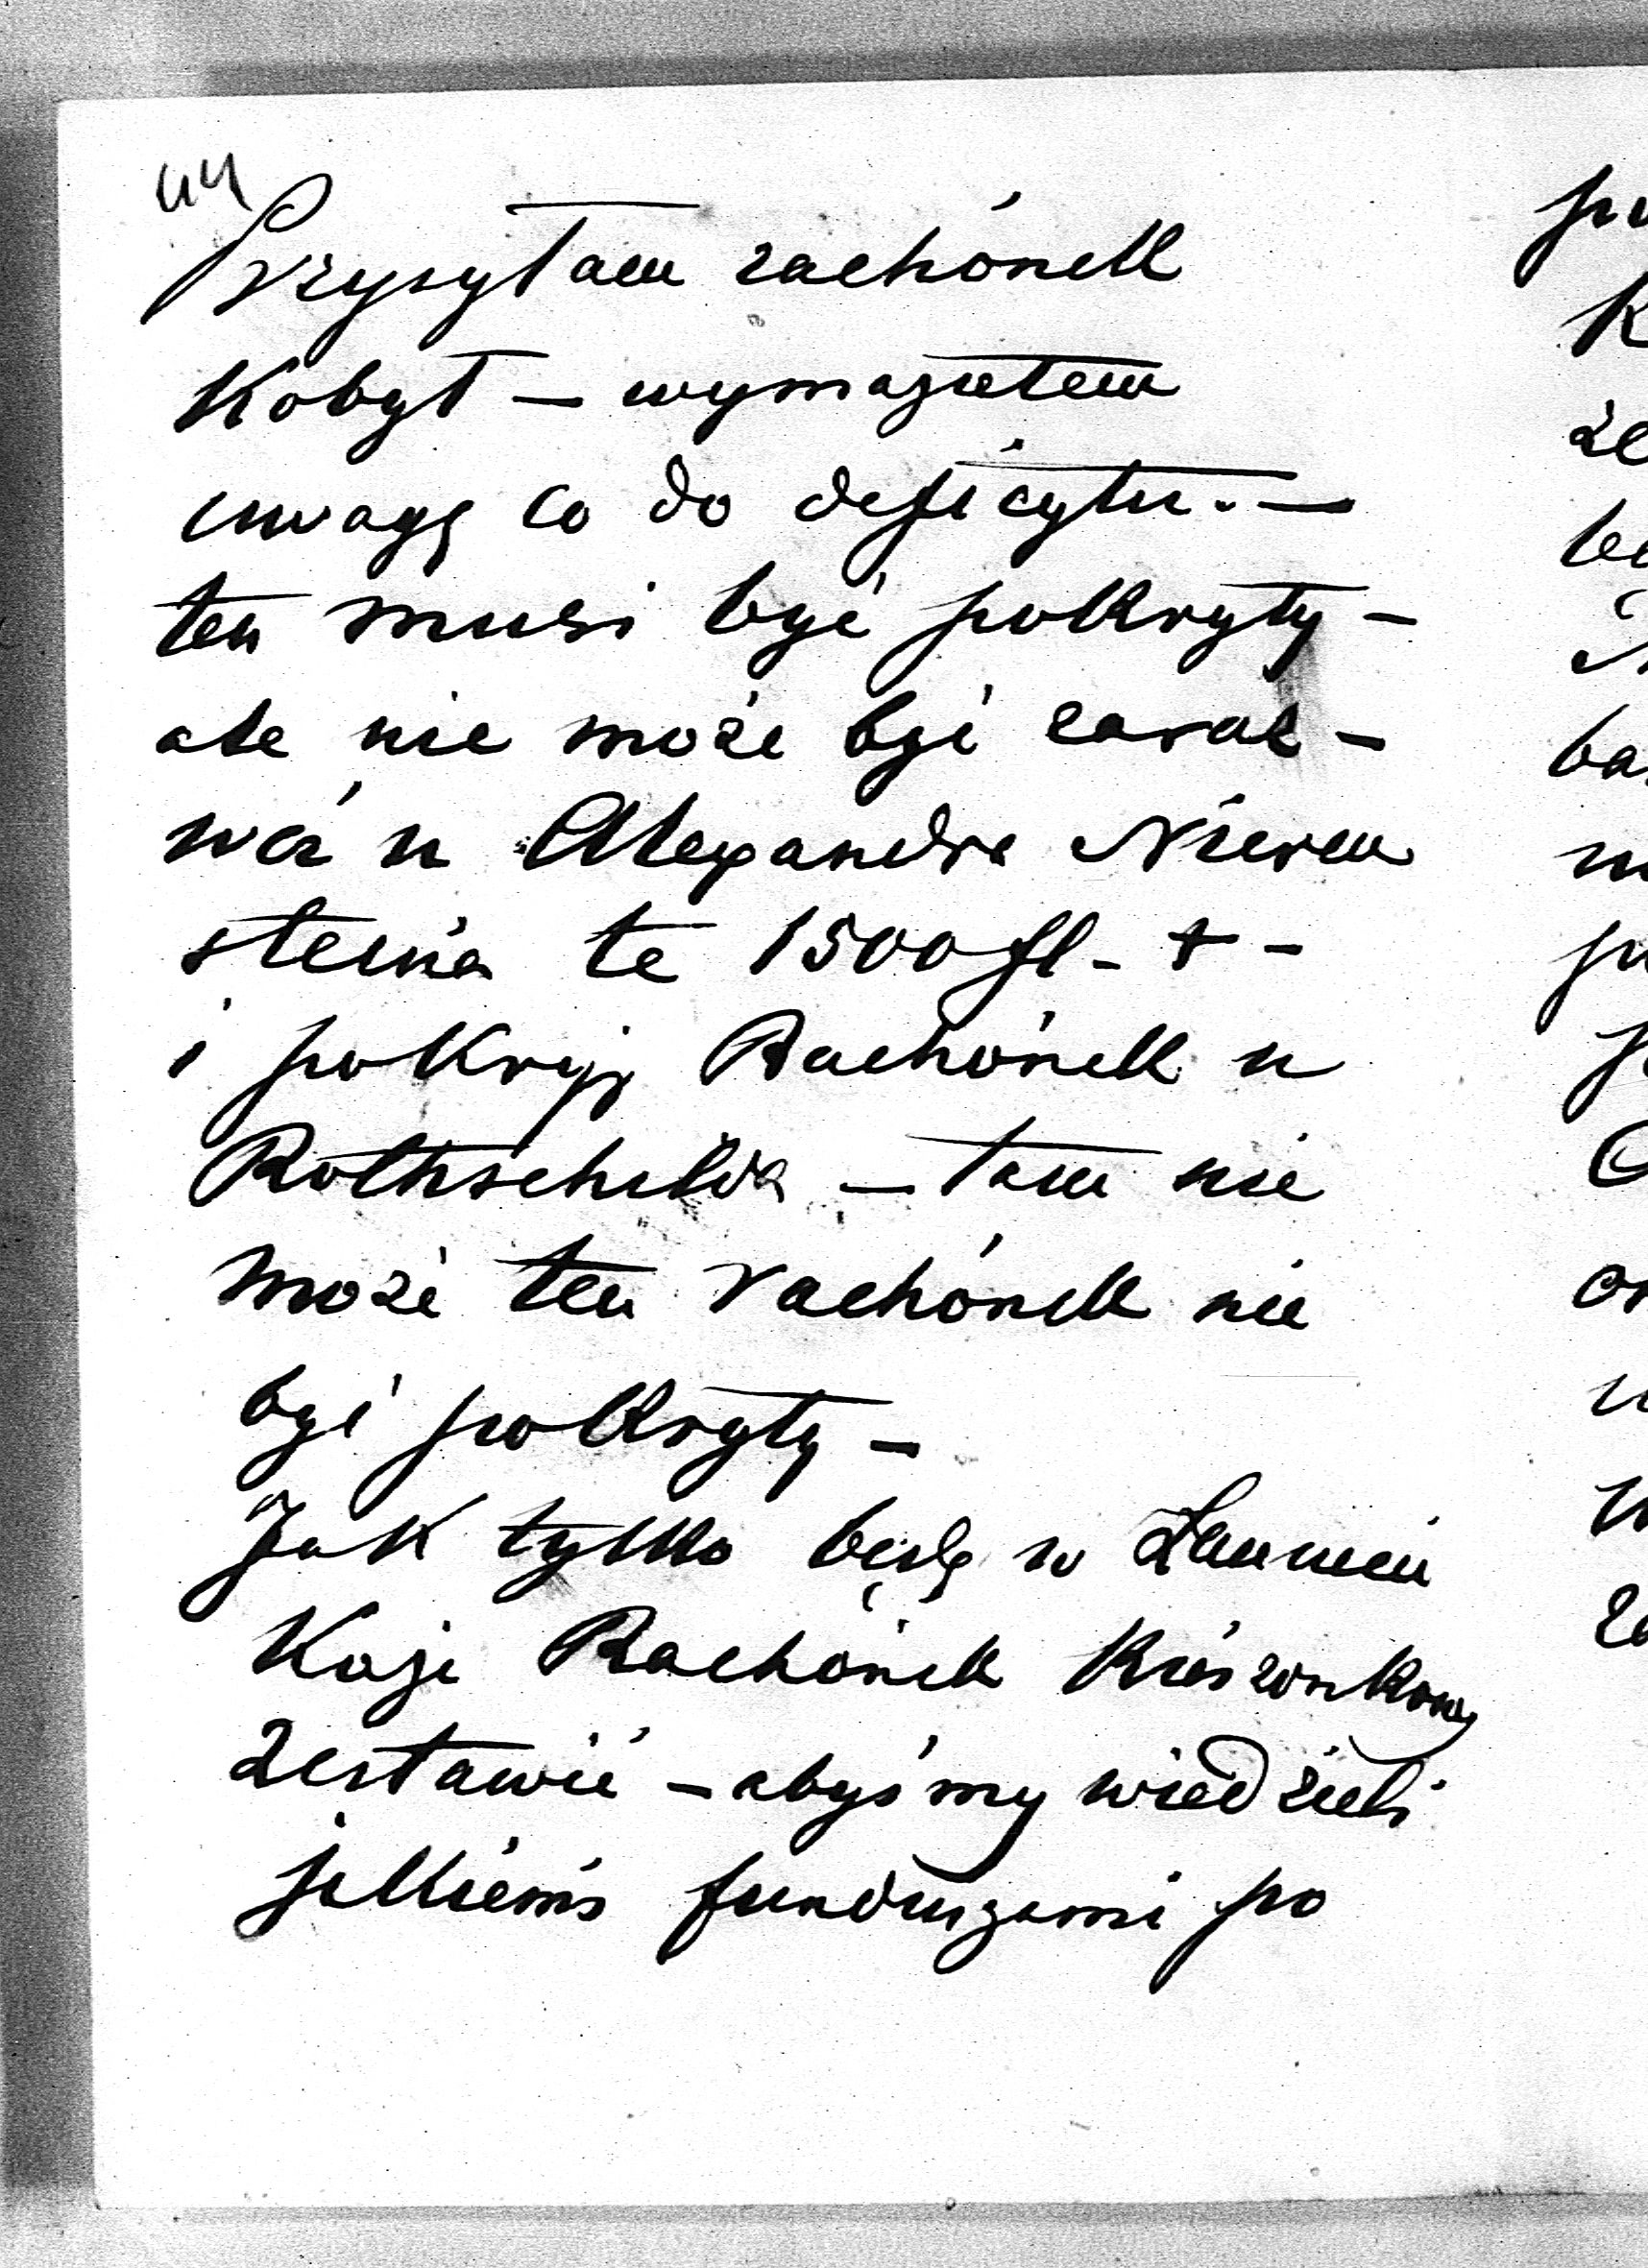 44
Przysyłam rachónek
Kobył — wymazałem
uwagę co do deficytu. —
ten musi być pokryty —
ale nie może być zaraz —
weź u Alexandra Nieren
steina te 1500 fl - + -
i pokryj Rachónek u
Rothschilda — tam nie
może ten rachónek nie
być pokryty —
Jak tylko będę w Łancucie
Każe Rachónek Kieszonkowy
zestawić — abyśmy wiedzieli
jakiemis funduszami po